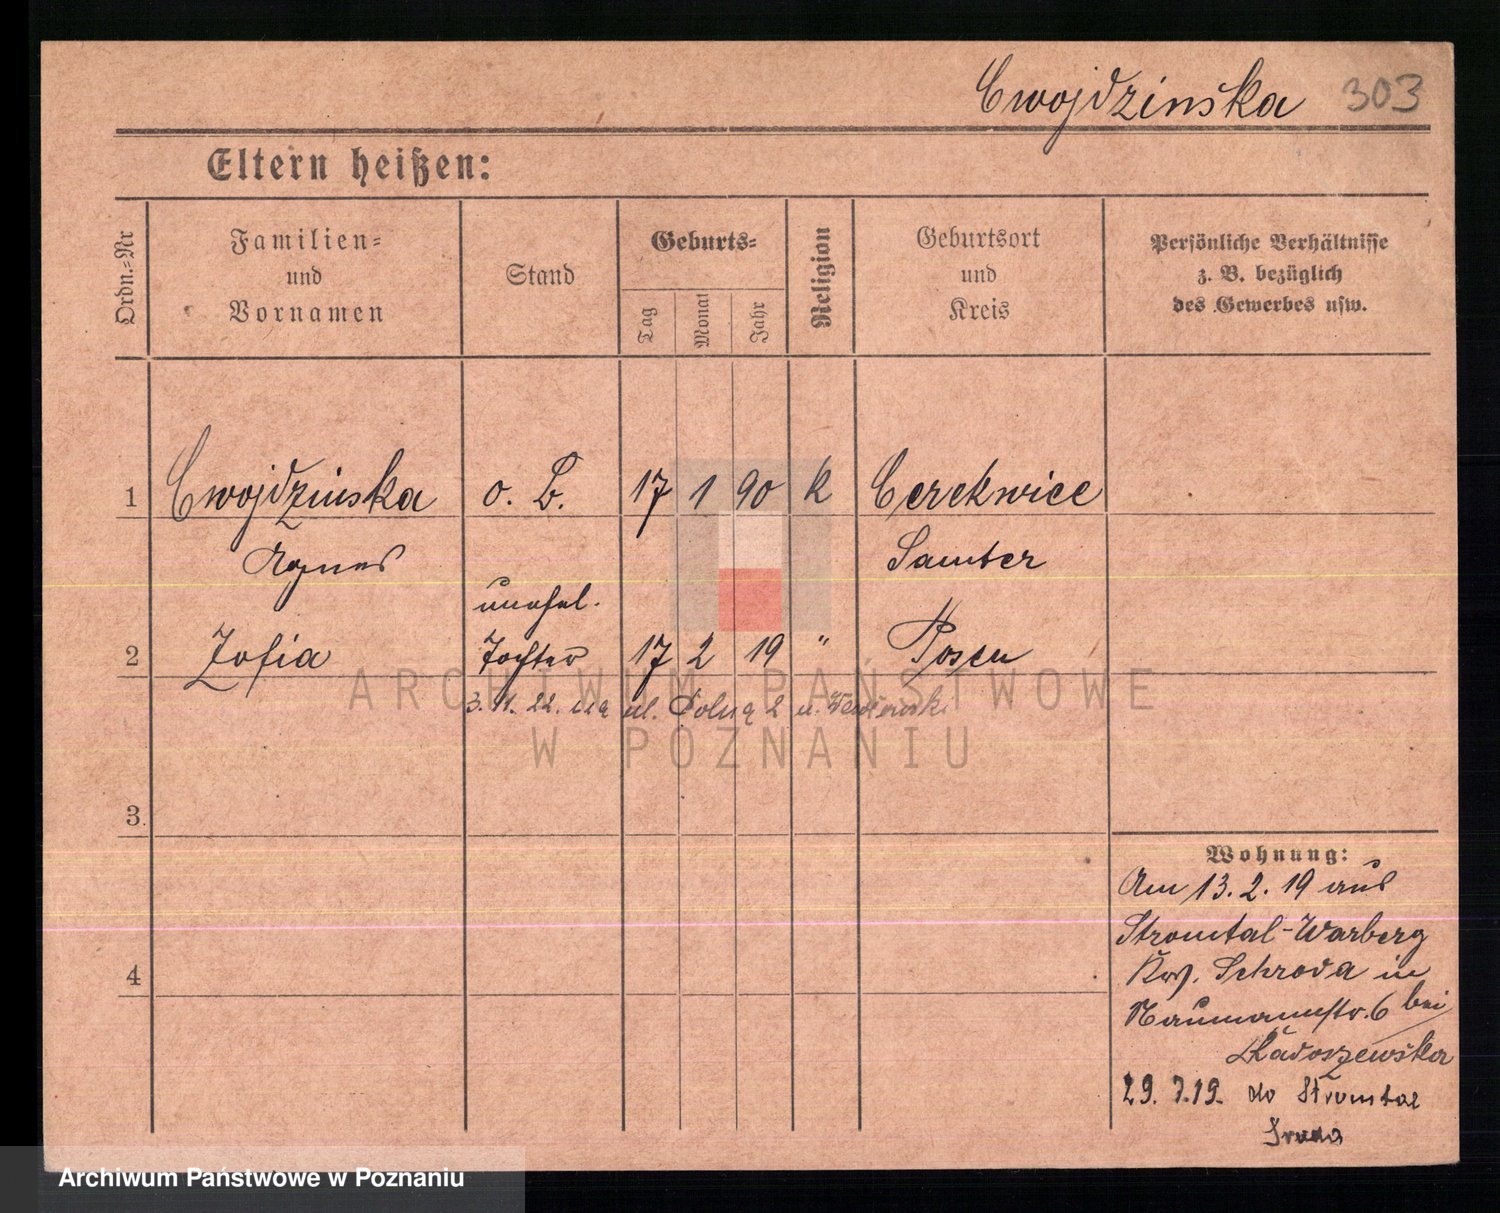 Cwojdzinška 303
Eltern heißen:
Ordn.=Nr
Familien=
und
Vornamen
Stand
Geburts=
Tag
Monat
Jahr
Religion
Geburtsort
und
Kreis
Persönliche Verhältnisse
z. B. bezüglich
des Gewerbes usw.
1 Cwojdzinska o. B. 17 1 90 k Cerekwice
Agnes Samter
unehel.
2 Zofia Tochter 17 2 19 " Posen
3. 11. 22. ul. Polna 2 u.
3.
4
Wohnung:
Am 13. 2. 19 aus
Stromtal-Warberg
Krs. Schroda in
Naumannstr. 6 bei
Radoszewska
29. 7. 19. do Stromtal
Sroda
ARCHIWUM PAŃSTWOWE
W POZNANIU
Archiwum Państwowe w Poznaniu